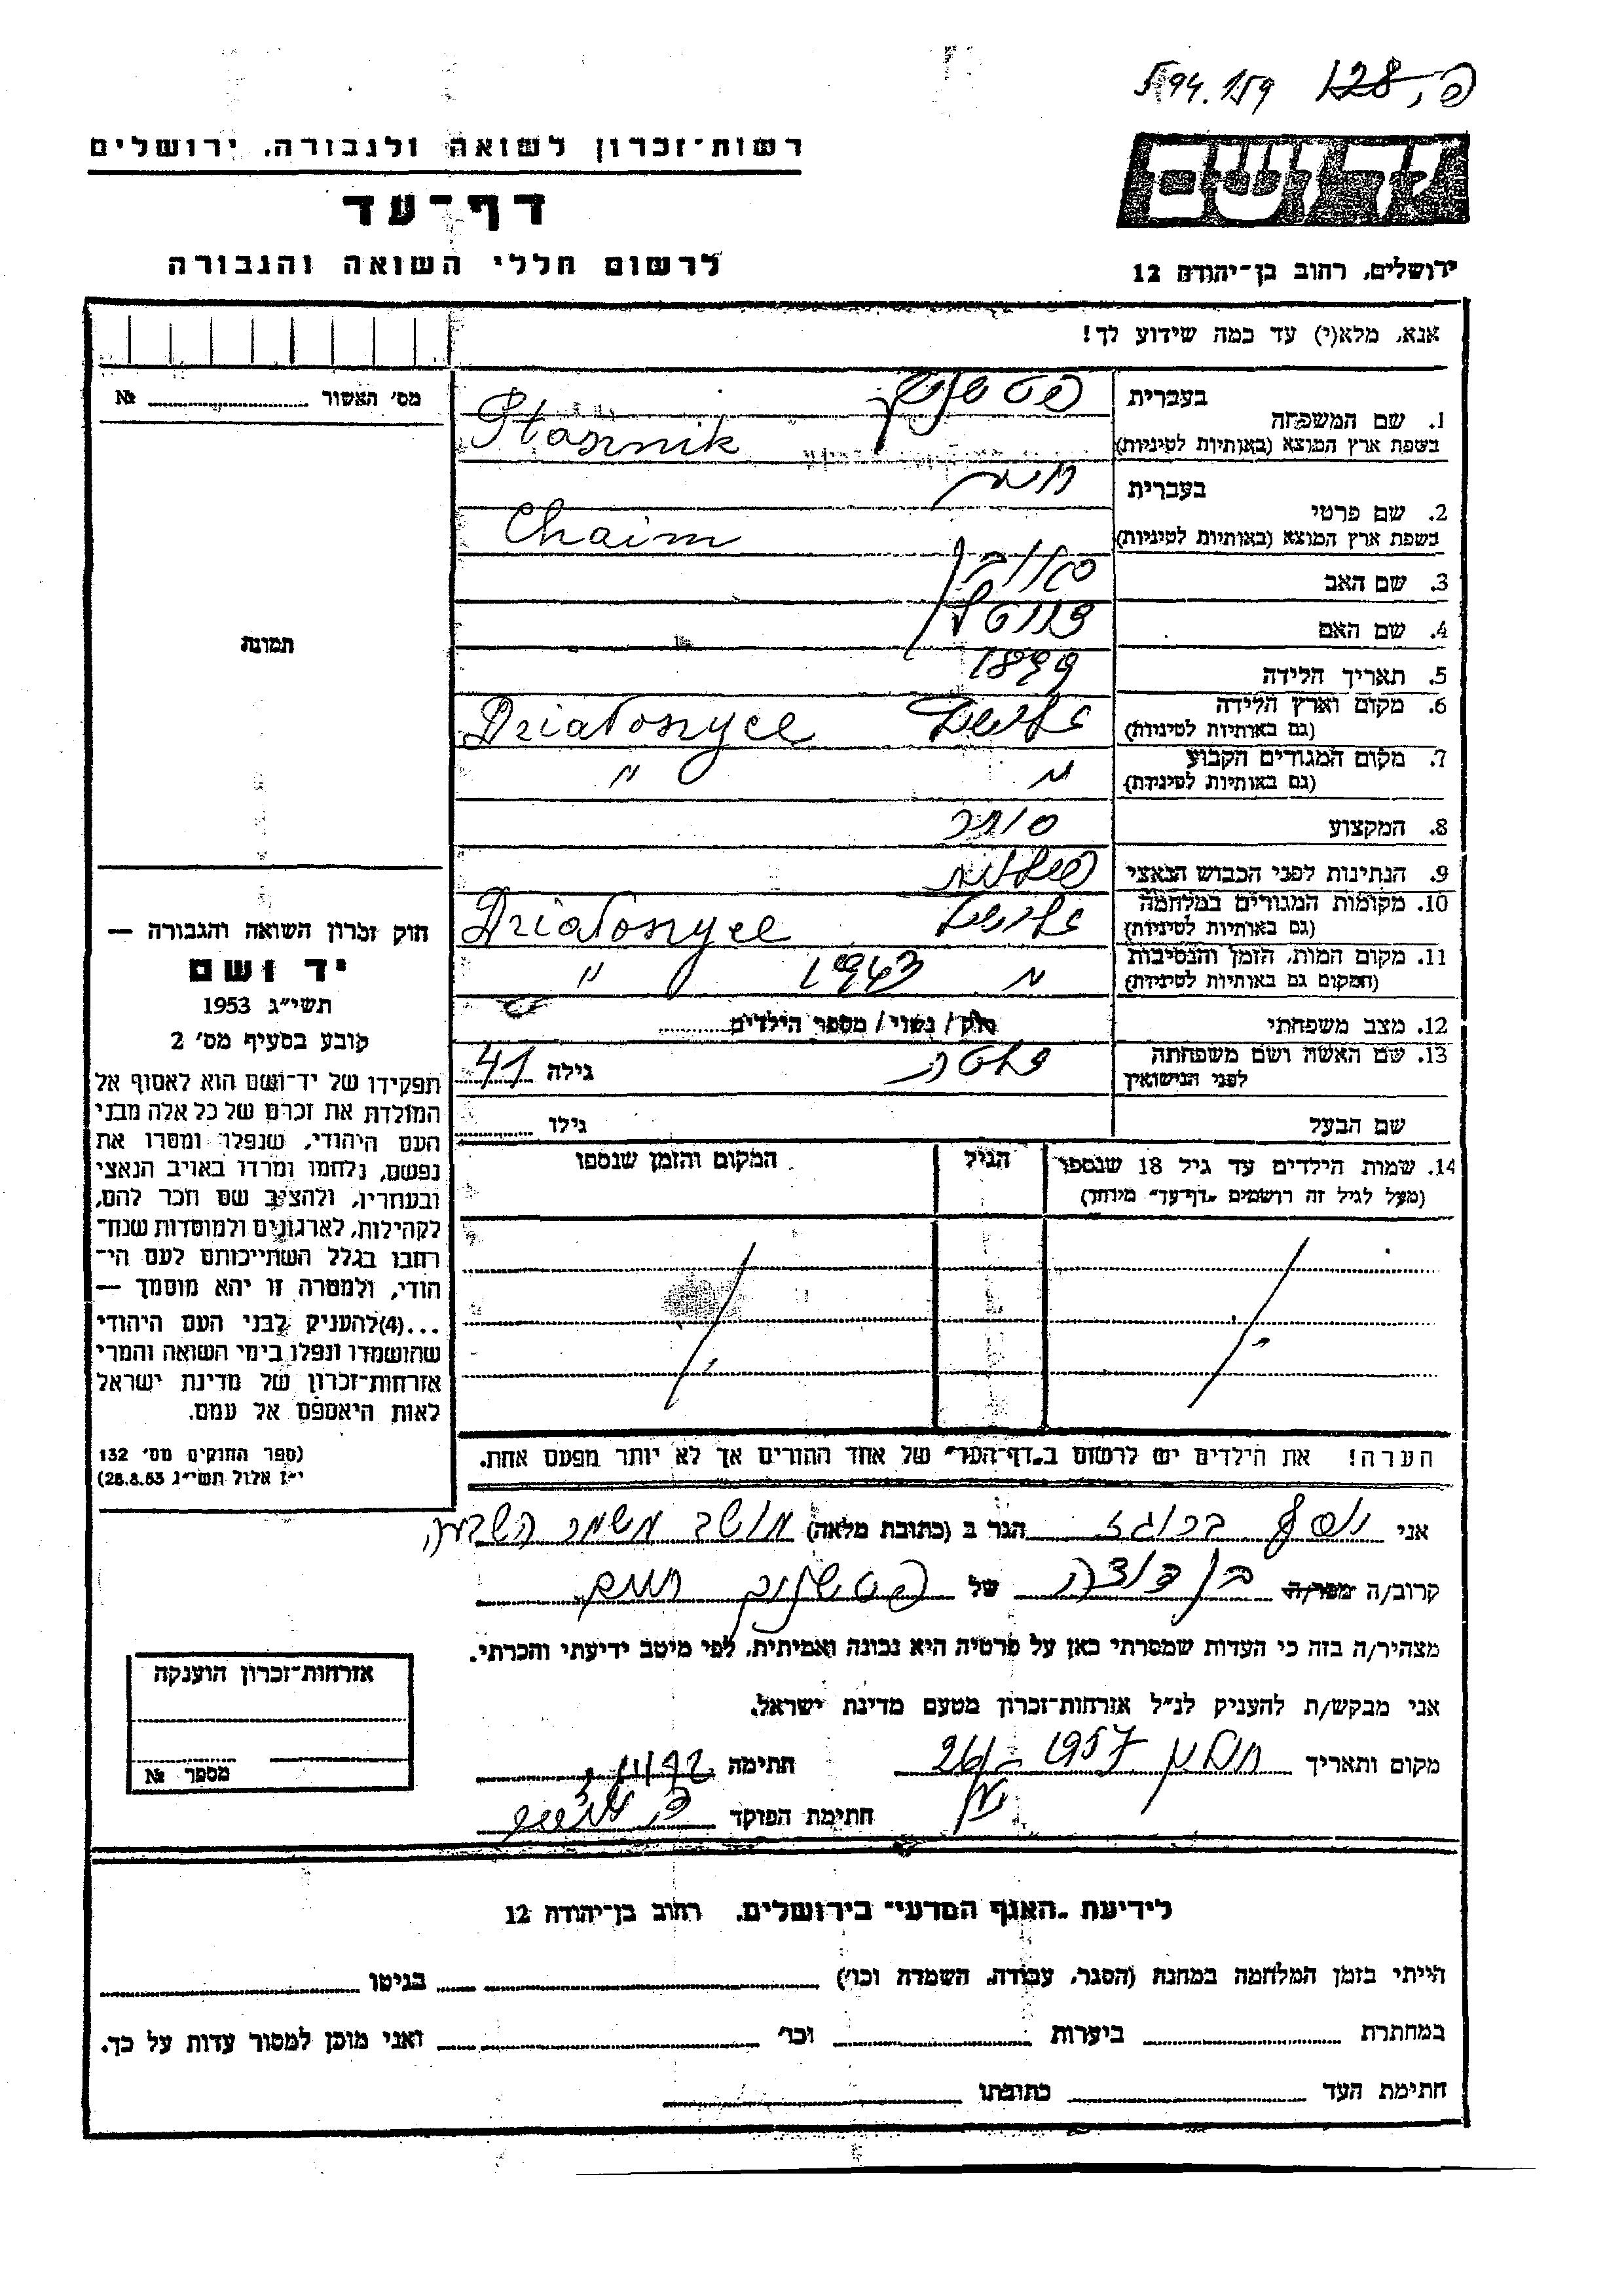 594.159 128, פ
רשות־זכרון לשואה ולגבורה, ירושלים
דף־עד
לרשום חללי השואה והגבורה
יד ושם
ירושלים, רחוב בן־יהודה 12
אנא, מלא(י) עד כמה שידוע לך!
מס׳ האשור №
תמונה
בעברית
1. שם המשפחה
בשפת ארץ המוצא (באותיות לטיניות) Ptasznik
בעברית חיים
2. שם פרטי
בשפת ארץ המוצא (באותיות לטיניות) Chaim
3. שם האב
4. שם האם
5. תאריך הלידה 1899
6. מקום וארץ הלידה
(גם באותיות לטיניות) Działoszyce
7. מקום המגורים הקבוע
(גם באותיות לטיניות) " "
8. המקצוע סוחר
9. הנתינות לפני הכבוש הנאצי פולנית
10. מקומות המגורים במלחמה
(גם באותיות לטיניות) Działoszyce
11. מקום המות, הזמן והנסיבות
(המקום גם באותיות לטיניות) " 1943 "
12. מצב משפחתי רוק / נשוי / מספר הילדים
13. שם האשה ושם משפחתה
לפני הנישואין גילה 41
שם הבעל גילו
14. שמות הילדים עד גיל 18 שנספו הגיל המקום והזמן שנספו
(מעל לגיל זה רושמים „דף־עד״ מיוחד)
הערה! את הילדים יש לרשום ב„דף־העד״ של אחד ההורים אך לא יותר מפעם אחת.
חוק זכרון השואה והגבורה —
יד ושם
תשי״ג 1953
קובע בסעיף מס׳ 2
תפקידו של יד־ושם הוא לאסוף אל
המולדת את זכרם של כל אלה מבני
העם היהודי, שנפלו ומסרו את
נפשם, נלחמו ומרדו באויב הנאצי
ובעוזריו, ולהציב שם וזכר להם,
לקהילות, לארגונים ולמוסדות שנח־
רבו בגלל השתייכותם לעם הי־
הודי, ולמטרה זו יהא מוסמך —
...(4)להעניק לבני העם היהודי
שהושמדו ונפלו בימי השואה והמרי
אזרחות־זכרון של מדינת ישראל
לאות היאספם אל עמם.
(ספר החוקים מס׳ 132
י״ז אלול תשי״ג 28.8.53)
אני יוסף הגר ב (כתובת מלאה) מושב משמר השבעה
קרוב/ה מכר/ה בן דודה של פטשניק חיים
מצהיר/ה בזה כי העדות שמסרתי כאן על פרטיה היא נכונה ואמיתית, לפי מיטב ידיעתי והכרתי.
אני מבקש/ת להעניק לנ״ל אזרחות־זכרון מטעם מדינת ישראל.
מקום ותאריך 1957 חתימה
חתימת הפוקד
אזרחות־זכרון הוענקה
מספר №
לידיעת „האגף המדעי״ בירושלים, רחוב בן־יהודה 12
הייתי בזמן המלחמה במחנה (הסגר, עבודה, השמדה וכו׳) בגיטו
במחתרת ביערות וכו׳ ואני מוכן למסור עדות על כך.
חתימת העד כתובתו